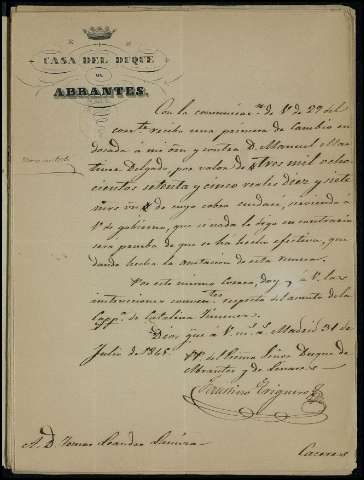 CASA DEL DUQUE
DE
ABRANTES.
Con la comunicac.n de V. de 29 del
corr.te recibo una primera de cambio en
dosada á mi orn y contra D. Manuel Mar
tinez Delgado, por valor de tres mil ocho
cientos setenta y cinco reales diez y siete
mrs vn de cuyo cobro cuidaré, sirviendo á
V. de gobierno, que si nada le digo en contrario
será prueba de que se há hecho efectiva, que
dando hecha la anotacion de esta remesa.
Por este mismo correo, doy á V. las
instrucciones convenientes respecto del asunto de la
Capp.a de Catalina
Dios gue á V. m.s a.s Madrid 31 de
Julio de 1845.
PP. del Exmo Señor Duque de
Abrantes y de Linares
Faustino Trigueros
S. D. Tomas Leandro
Caceres